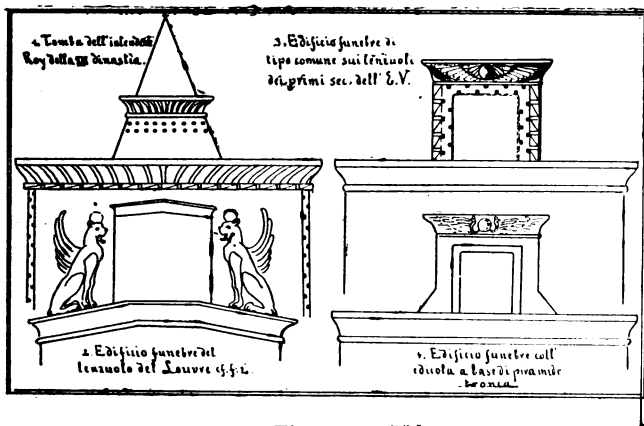 1. Tomba dell'intendente
Roy della XIX dinastia.
3. Edificio funebre di
tipo comune sui lenzuoli
dei primi sec. dell' E.V.
2. Edificio funebre del
lenzuolo del Louvre cf. f. 2.
4. Edificio funebre coll'
edicola a base di piramide
tronca